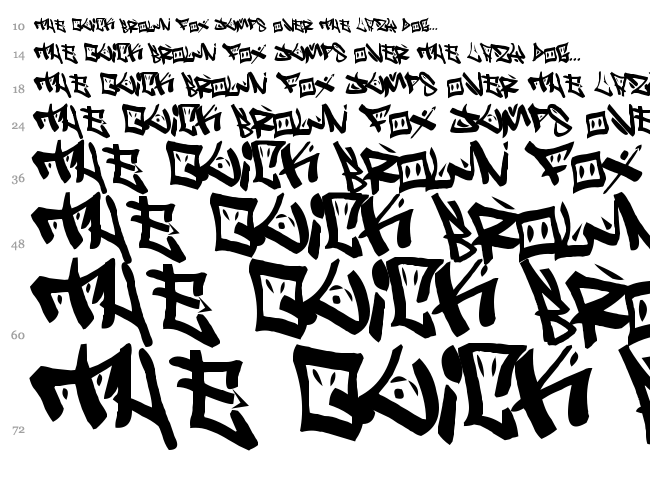 10 THE QUICK BROWN FOX JUMPS OVER THE LAZY DOG...
14 THE QUICK BROWN FOX JUMPS OVER THE LAZY DOG...
18 THE QUICK BROWN FOX JUMPS OVER THE LAZ
24 THE QUICK BROWN FOX JUMPS OVE
36 THE QUICK BROWN FOX
48 THE QUICK BROWN
60 THE QUICK BRO
72 THE QUICK